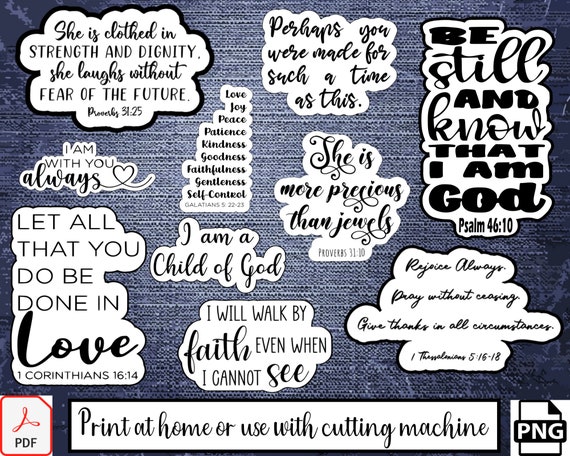 She is clothed in
STRENGTH AND DIGNITY,
she laughs without
FEAR OF THE FUTURE.
Proverbs 31:25
Perhaps you
were made for
such a time
as this.
BE
still
AND
know
THAT
I AM
God
Psalm 46:10
Love
Joy
Peace
Patience
Kindness
Goodness
Faithfulness
Gentleness
Self-Control
GALATIANS 5: 22-23
I AM
WITH YOU
always
She is
more precious
than jewels
PROVERBS 31:10
LET ALL
THAT YOU
DO BE
DONE IN
Love
1 CORINTHIANS 16:14
I am a
Child of God
Rejoice Always.
Pray without ceasing.
Give thanks in all circumstances.
1 Thessalonians 5:16-18
I WILL WALK BY
faith EVEN WHEN
I CANNOT see
PDF
Print at home or use with cutting machine
PNG